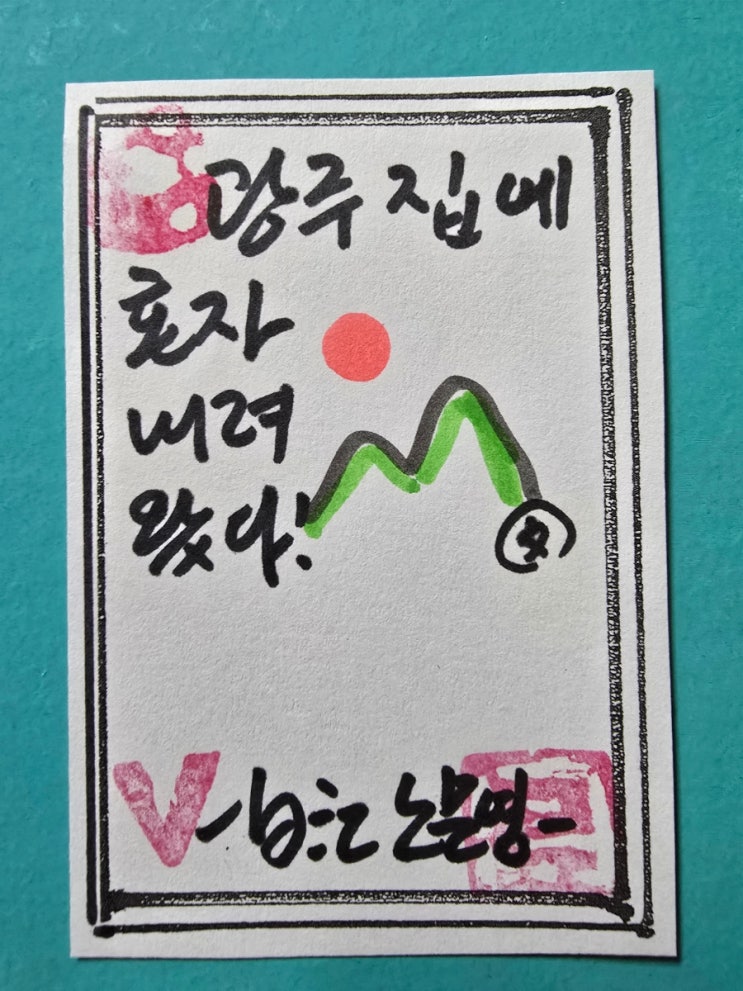 광주 집에
혼자
내려
왔다!
노문영-